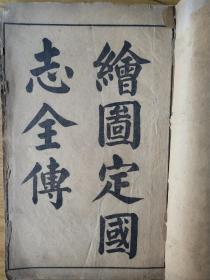 繪圖定國
志全傳